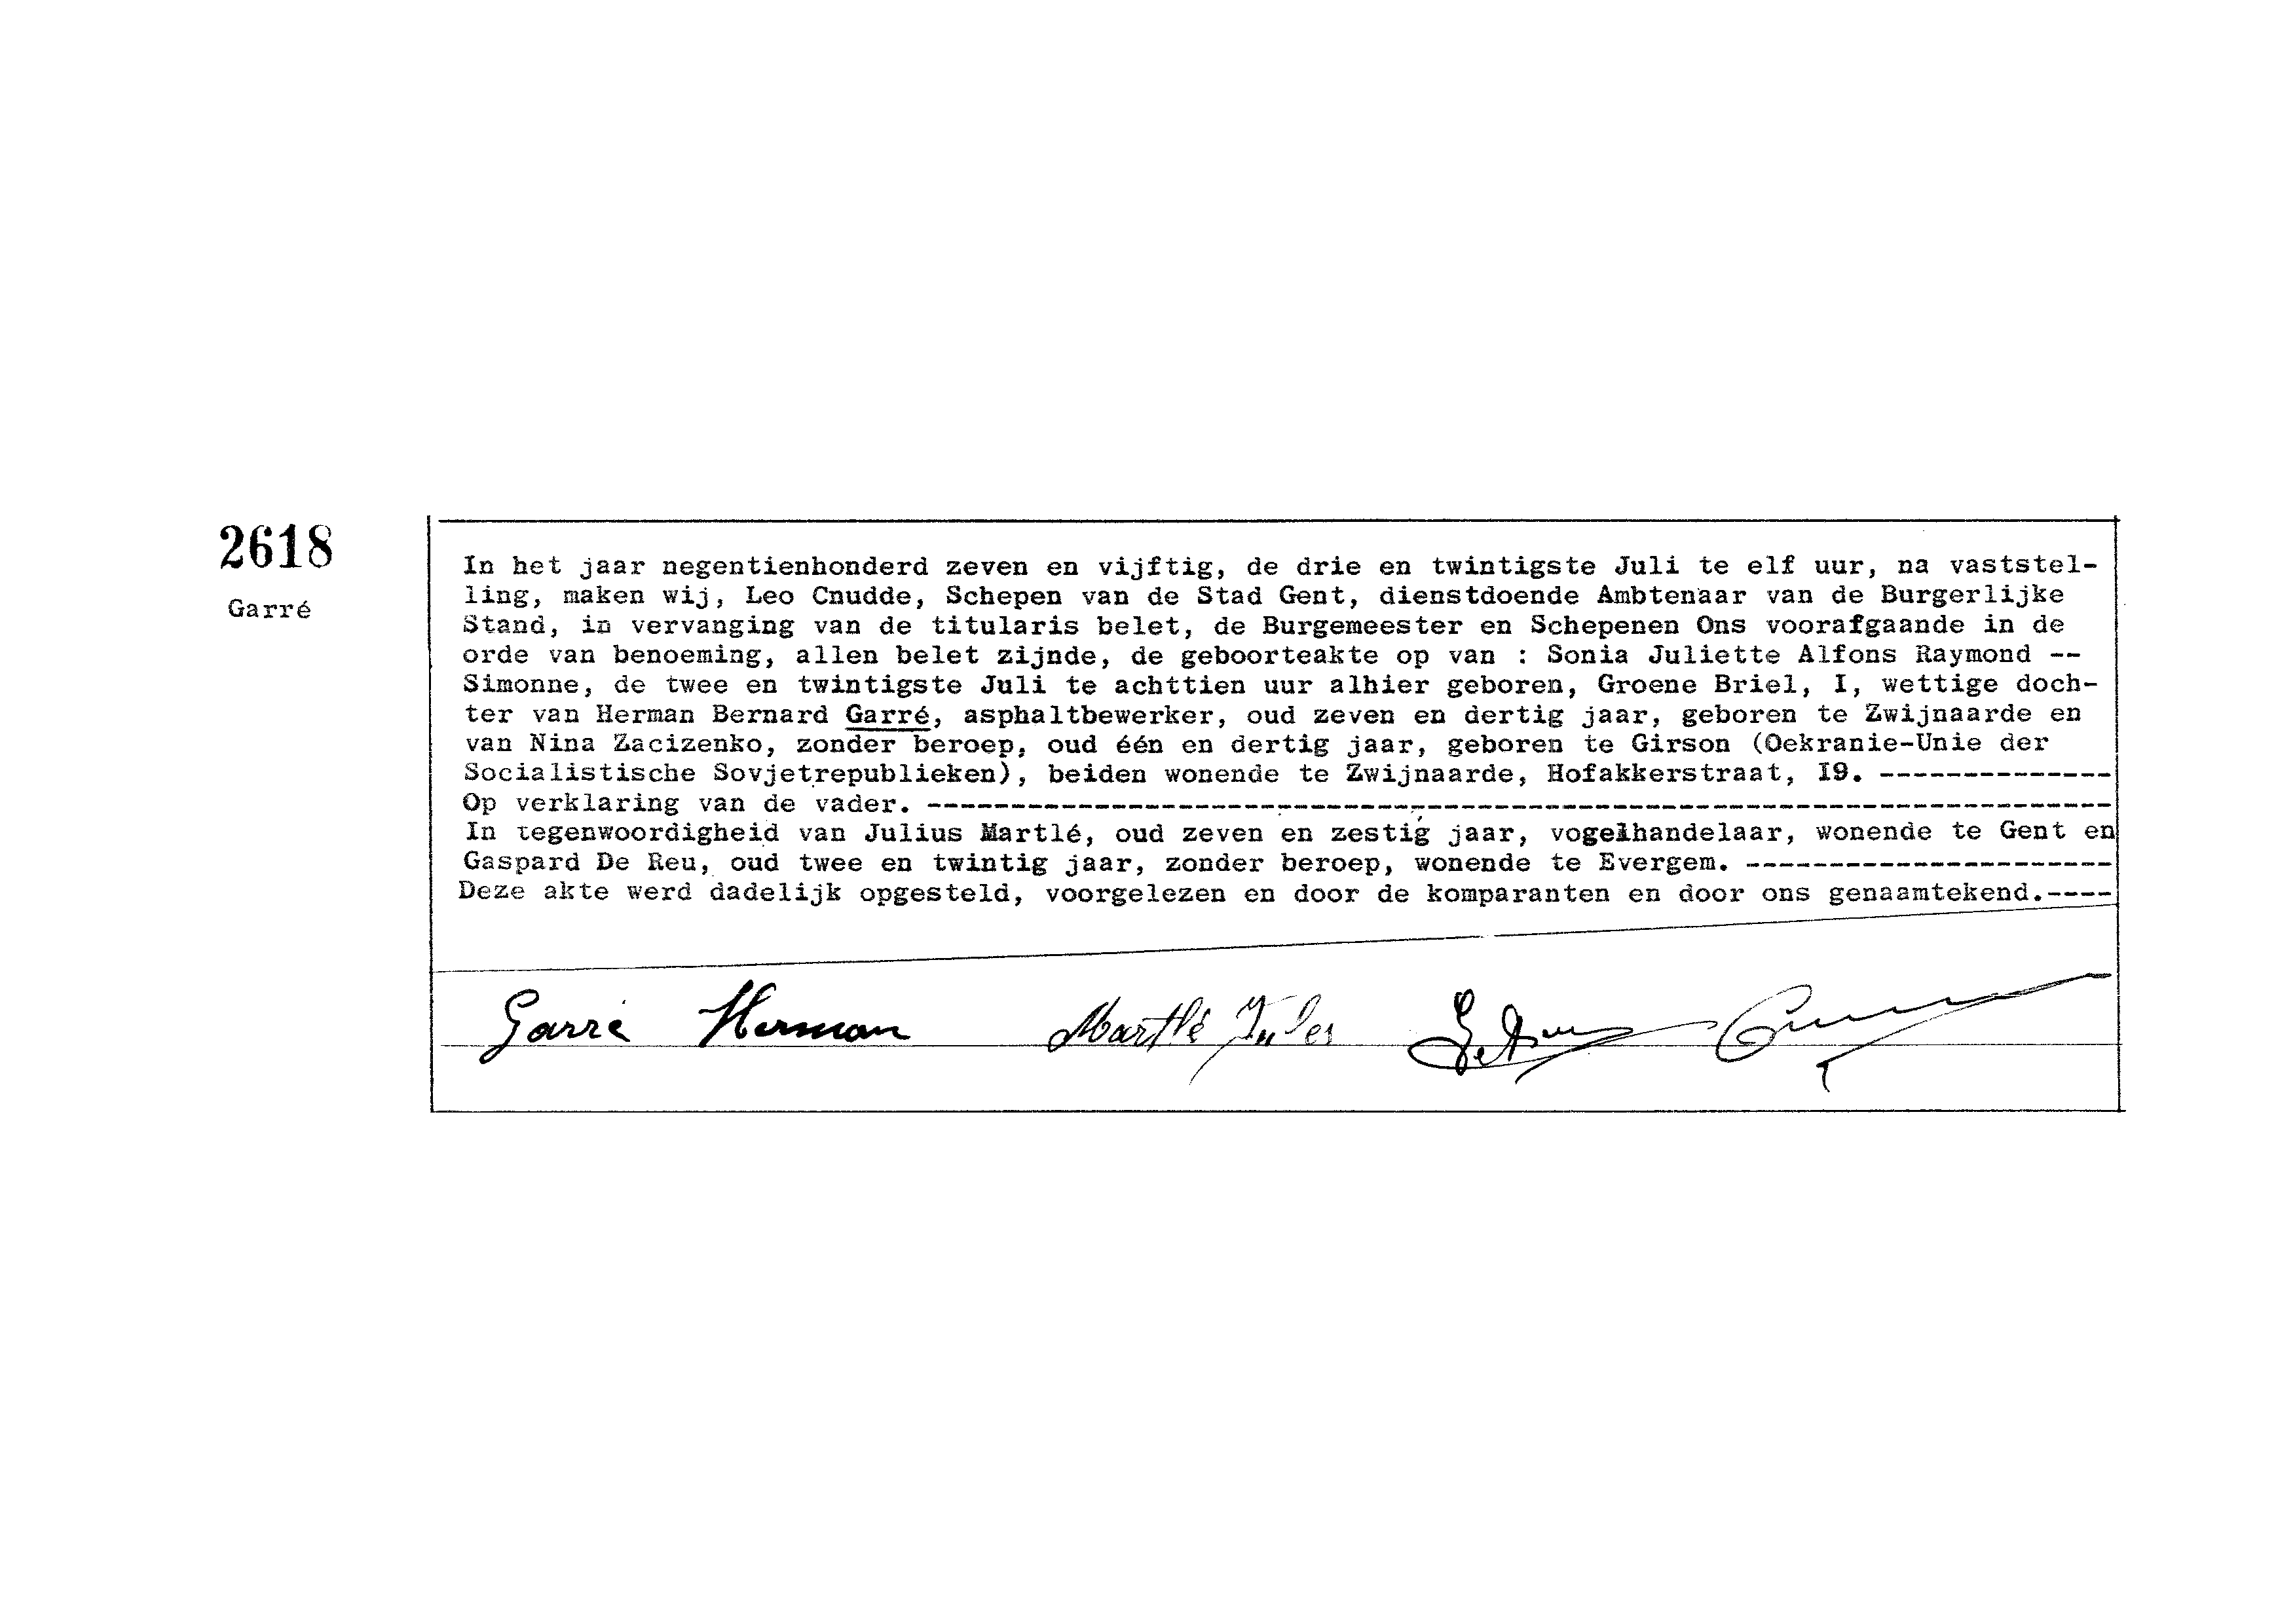 2618
Garré
In het jaar negentienhonderd zeven en vijftig, de drie en twintigste Juli te elf uur, na vaststel-
ling, maken wij, Leo Cnudde, Schepen van de Stad Gent, dienstdoende Ambtenaar van de Burgerlijke
Stand, in vervanging van de titularis belet, de Burgemeester en Schepenen Ons voorafgaande in de
orde van benoeming, allen belet zijnde, de geboorteakte op van : Sonia Juliette Alfons Raymond --
Simonne, de twee en twintigste Juli te achttien uur alhier geboren, Groene Briel, I, wettige doch-
ter van Herman Bernard Garré, asphaltbewerker, oud zeven en dertig jaar, geboren te Zwijnaarde en
van Nina Zacizenko, zonder beroep, oud één en dertig jaar, geboren te Girson (Oekranie-Unie der
Socialistische Sovjetrepublieken), beiden wonende te Zwijnaarde, Hofakkerstraat, I9. --------------
Op verklaring van de vader. -----------------------------------------------------------------------
In tegenwoordigheid van Julius Martlé, oud zeven en zestig jaar, vogelhandelaar, wonende te Gent en
Gaspard De Reu, oud twee en twintig jaar, zonder beroep, wonende te Evergem. ----------------------
Deze akte werd dadelijk opgesteld, voorgelezen en door de komparanten en door ons genaamtekend.----
Garré Herman Martlé Jules